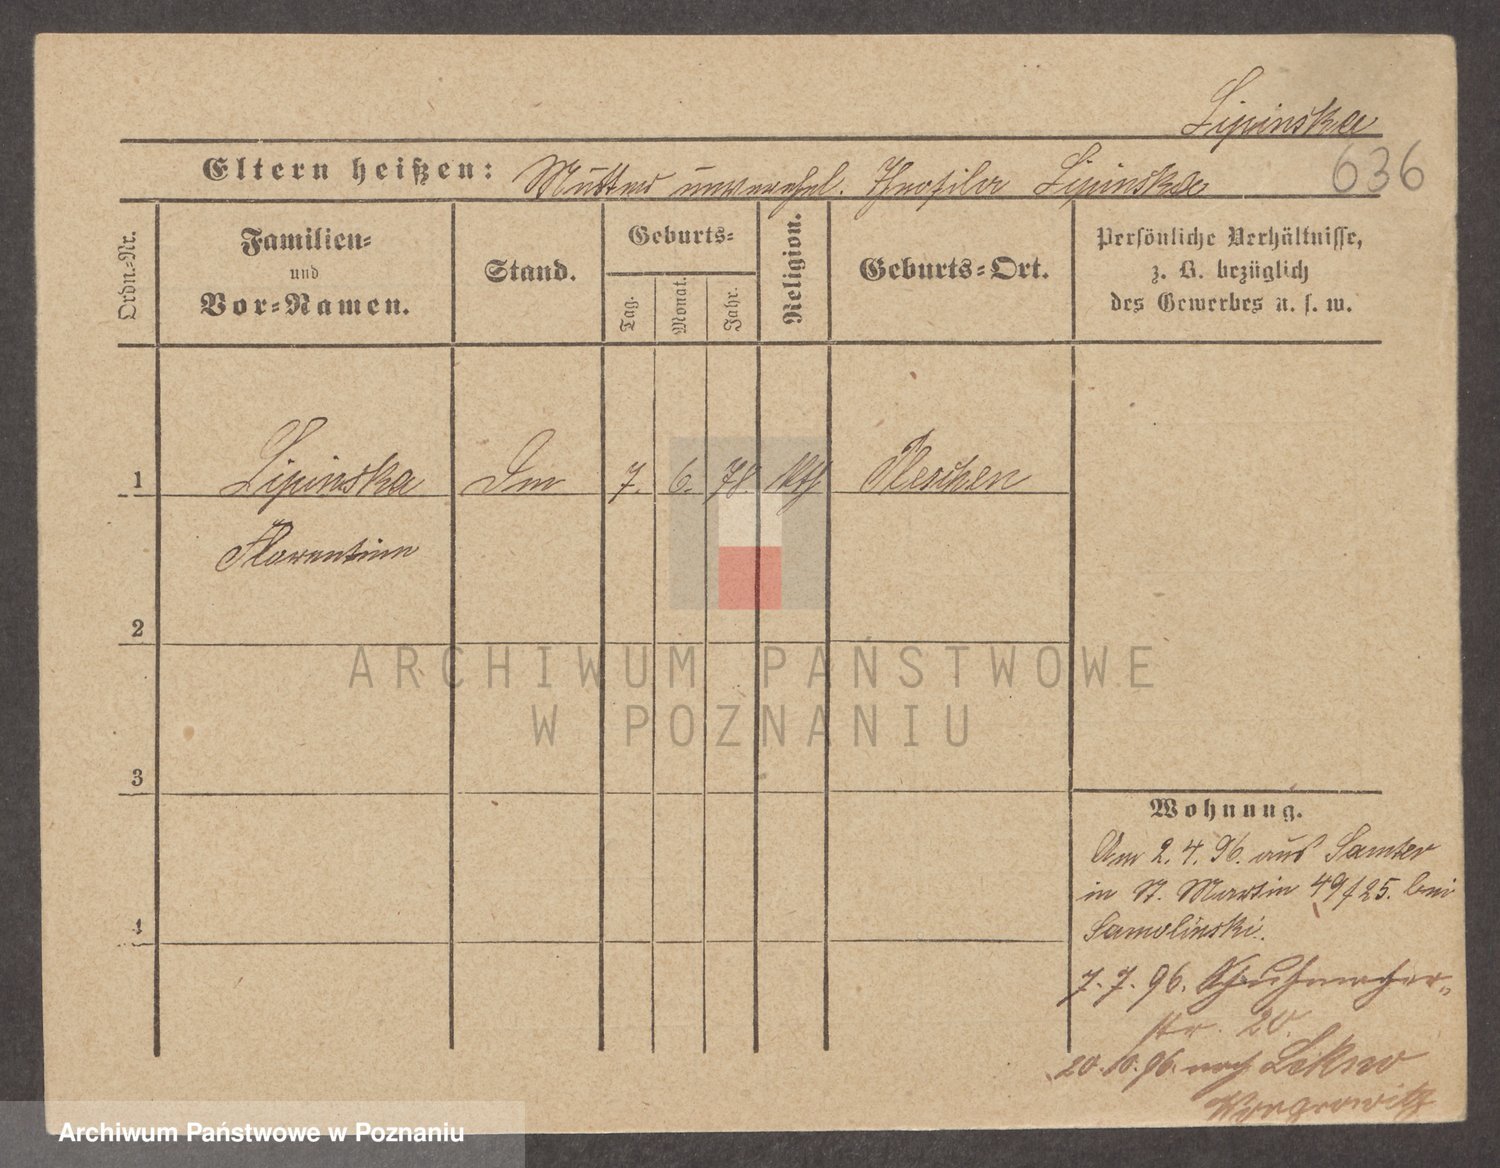 Lipinska
636
Eltern heißen: Mutter unverehel. Theofila Lipinska
Ordn.-Nr.
Familien-
und
Vor-Namen.
Stand.
Geburts-
Tag.
Monat.
Jahr.
Religion.
Geburts-Ort.
Persönliche Verhältnisse,
z. B. bezüglich
des Gewerbes u. s. w.
1 Lipinska 7. 6. 78. kth Pleschen
Florentina
2
3
4
Wohnung.
Am 2.4.96. aus Samter
in St. Martin 49/25. bei
Samolinski.
7.7.96. Schuhmacher-
str. 20.
20.10.96. nach Lekno
Wongrowitz
ARCHIWUM PAŃSTWOWE
W POZNANIU
Archiwum Państwowe w Poznaniu